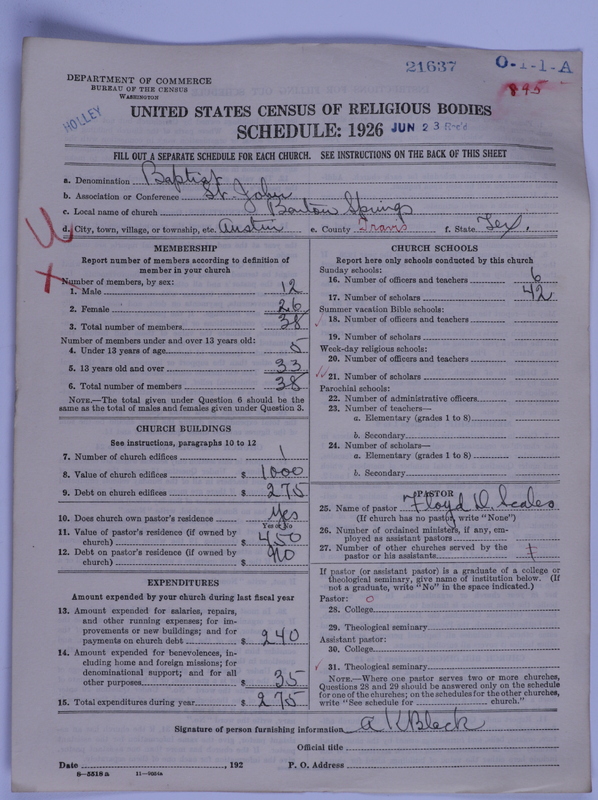 21637
O-1-1-A
895
DEPARTMENT OF COMMERCE
BUREAU OF THE CENSUS
WASHINGTON
HOLLEY
UNITED STATES CENSUS OF RELIGIOUS BODIES
SCHEDULE: 1926 JUN 23 Rec'd
FILL OUT A SEPARATE SCHEDULE FOR EACH CHURCH. SEE INSTRUCTIONS ON THE BACK OF THIS SHEET
a. Denomination Baptist
b. Association or Conference St. John
c. Local name of church Barton Springs
d. City, town, village, or township, etc. Austin e. County Travis f. State Tex.
MEMBERSHIP
Report number of members according to definition of
member in your church
Number of members, by sex:
1. Male 12
2. Female 26
3. Total number of members 38
Number of members under and over 13 years old:
4. Under 13 years of age 5
5. 13 years old and over 33
6. Total number of members 38
NOTE.—The total given under Question 6 should be the
same as the total of males and females given under Question 3.
CHURCH BUILDINGS
See instructions, paragraphs 10 to 12
7. Number of church edifices 1
8. Value of church edifices $ 1000
9. Debt on church edifices $ 275
10. Does church own pastor's residence Yes
Yes or No
11. Value of pastor's residence (if owned by
church) $ 450
12. Debt on pastor's residence (if owned by
church) $ no
EXPENDITURES
Amount expended by your church during last fiscal year
13. Amount expended for salaries, repairs,
and other running expenses; for im-
provements or new buildings; and for
payments on church debt $ 240
14. Amount expended for benevolences, in-
cluding home and foreign missions; for
denominational support; and for all
other purposes $ 35
15. Total expenditures during year $ 275
CHURCH SCHOOLS
Report here only schools conducted by this church
Sunday schools:
16. Number of officers and teachers 6
17. Number of scholars 42
Summer vacation Bible schools:
18. Number of officers and teachers
19. Number of scholars
Week-day religious schools:
20. Number of officers and teachers
21. Number of scholars
Parochial schools:
22. Number of administrative officers
23. Number of teachers—
a. Elementary (grades 1 to 8)
b. Secondary
24. Number of scholars—
a. Elementary (grades 1 to 8)
b. Secondary
PASTOR
25. Name of pastor Floyd D. Scales
(If church has no pastor, write "None")
26. Number of ordained ministers, if any, em-
ployed as assistant pastors
27. Number of other churches served by the
pastor or his assistants
If pastor (or assistant pastor) is a graduate of a college or
theological seminary, give name of institution below. (If
not a graduate, write "No" in the space indicated.)
Pastor: 0
28. College
29. Theological seminary
Assistant pastor:
30. College
31. Theological seminary
NOTE.—Where one pastor serves two or more churches,
Questions 28 and 29 should be answered only on the schedule
for one of the churches; on the schedules for the other churches,
write "See schedule for church."
Signature of person furnishing information A K Black
Official title
Date , 192 P. O. Address
8-5518 a 11-9064a